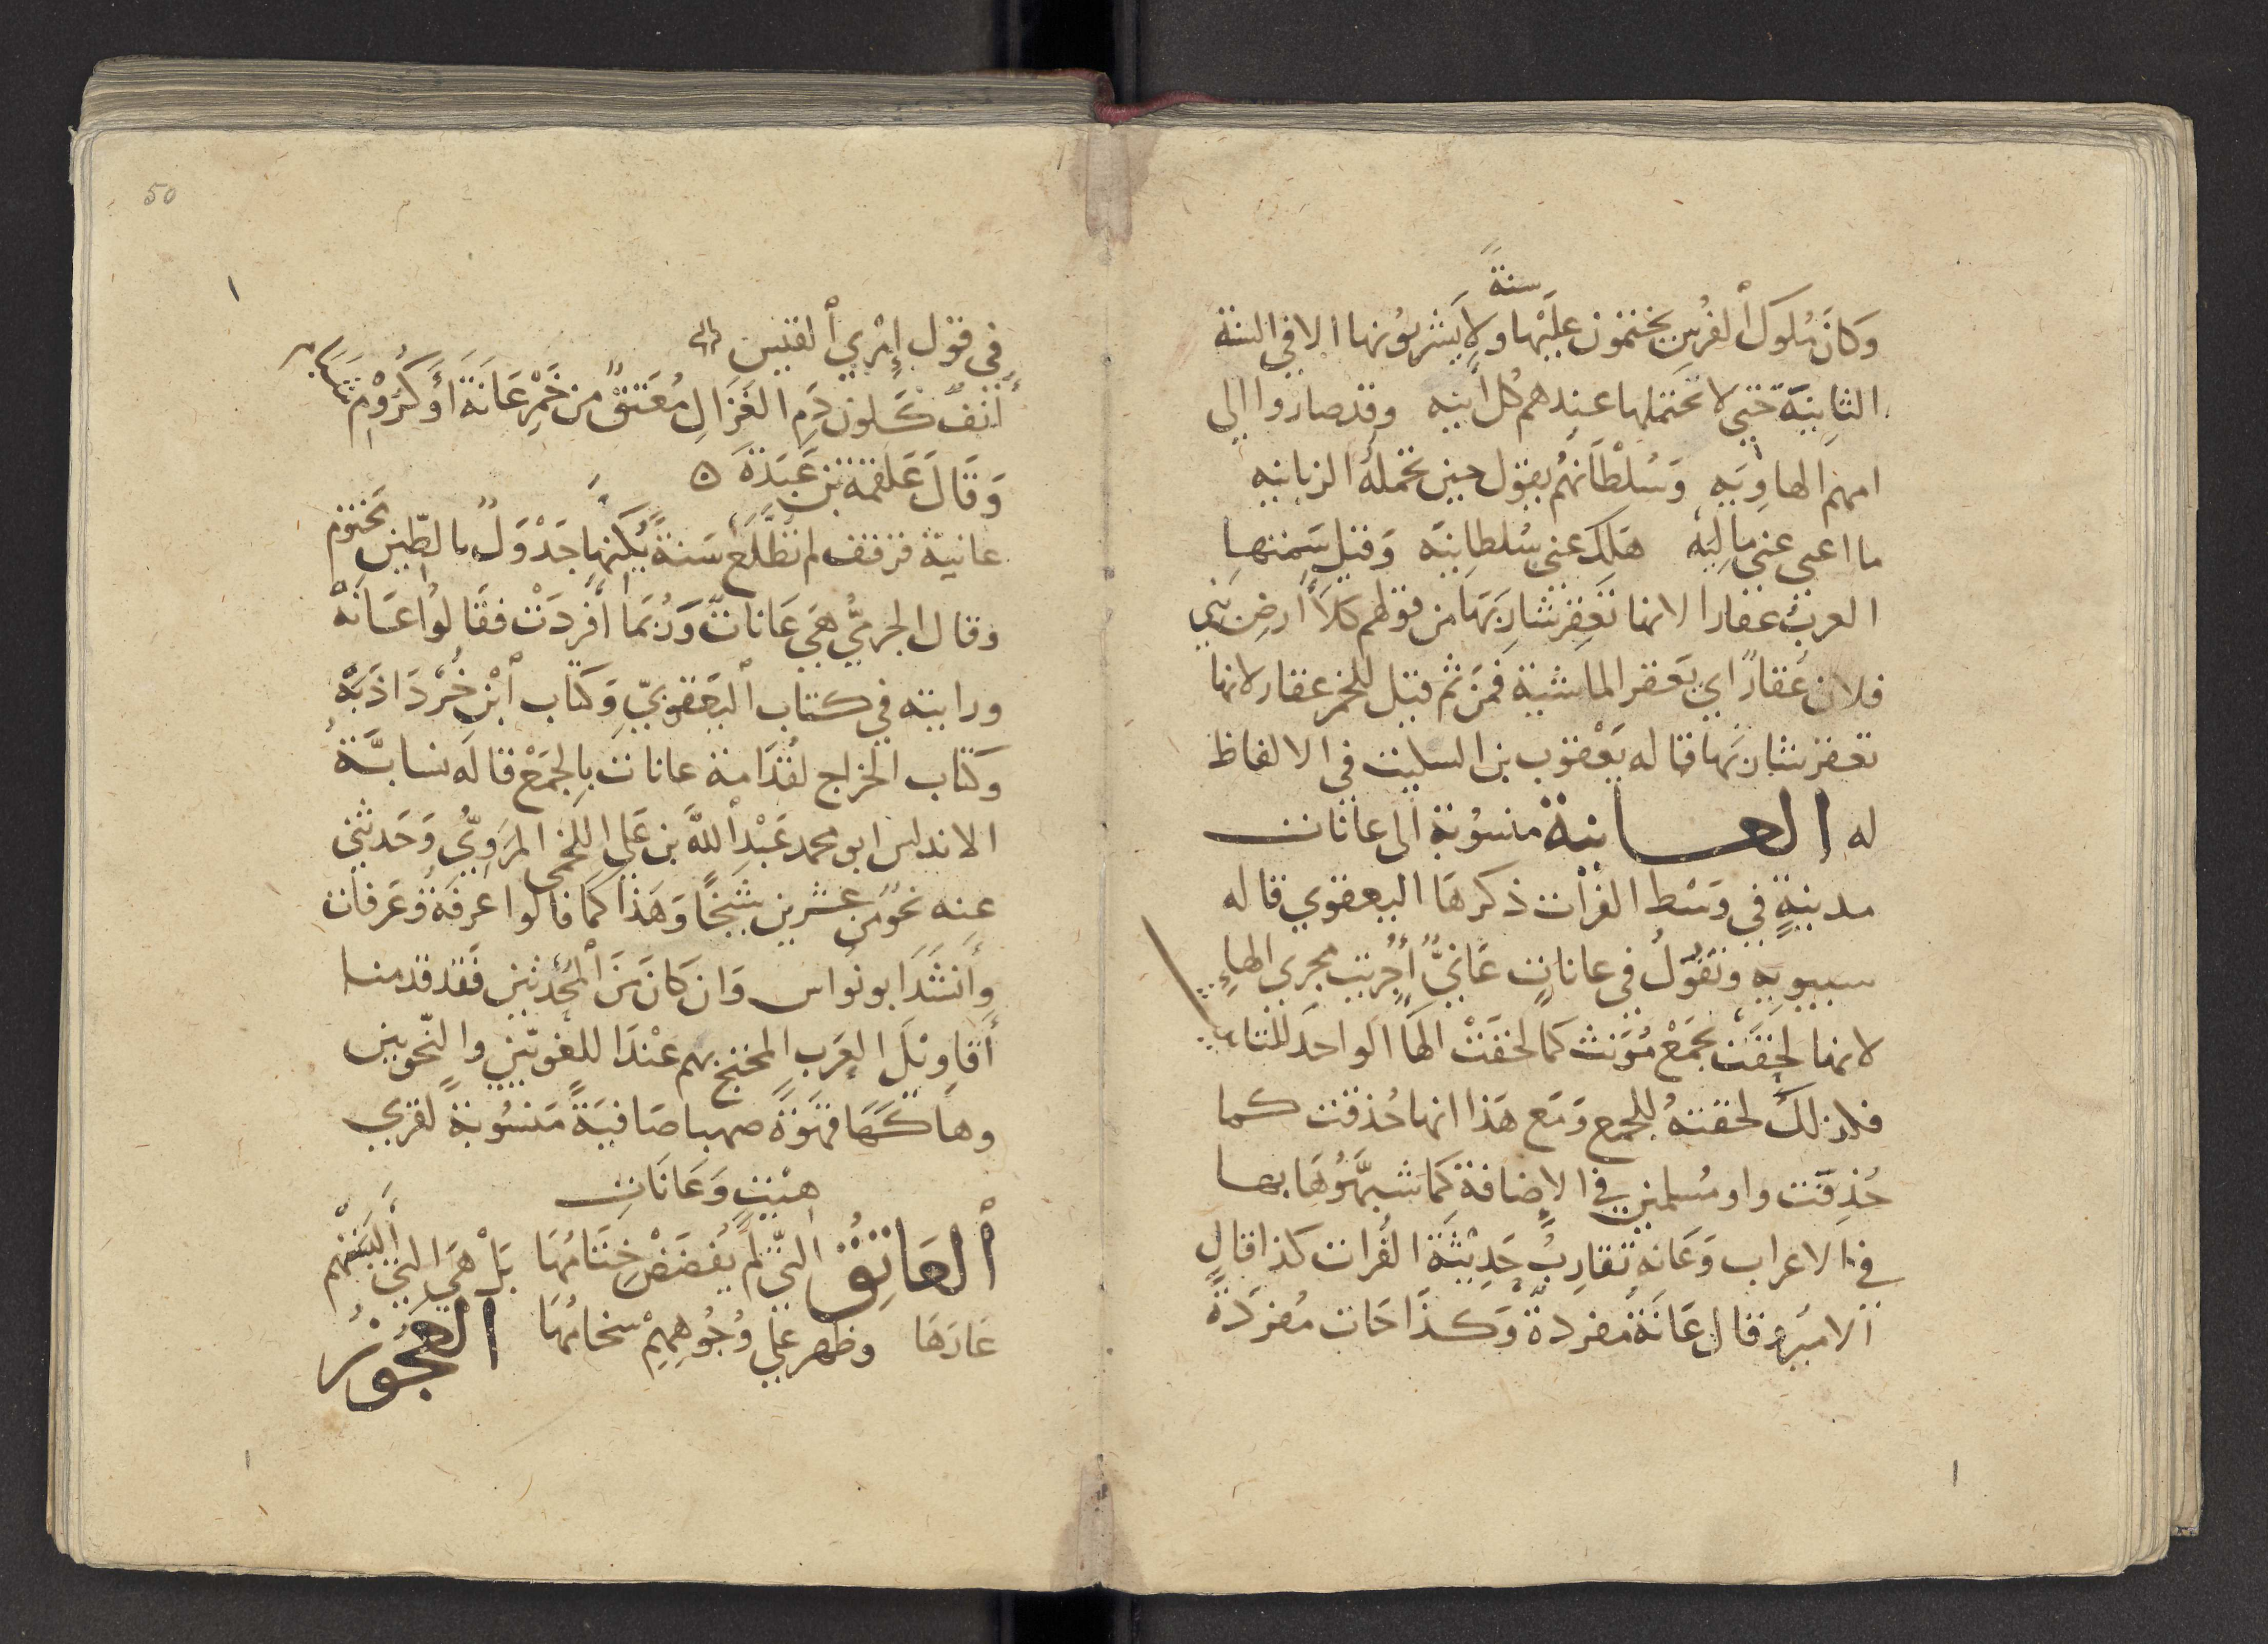 سنةً
وَكَانَ مُلوك ٱلفُرسِ يختمون عَليْهَا ولا يَشربُونها الا في السنة
الثانِيَة حَتّى لا تحتملها عندهم كل انيه وقد صاروا الى
امهم الهاوِيَه وَسُلْطَانهُم يقول حين تحمله الزبانيه
ما اغنى عنى مالِيَه هَلَكَ عنى سُلطانيَه وَقيل سَمتها
العرب عقارا لانها تعقِر شارِبَهَا من قولهم كَلأُ أرضِ بَنِي
فلان عُقَارٌ اي يَعقر الماشية فمَن ثم قيل للخمر عقار لانها
تعقر شاربَها قاله يَعْقوب بن السكيت في الالفاظ
له العانية منسُوبة الى عانات
مدينةٍ في وَسْط الفُرات ذكرهَا اليعقوبي قاله
سيبويه وتقول في عاناتٍ عَانِيٌّ أُجْريت مجرى الهاءِ
لانها لحِقَت لجَمْع مُؤنث كما لحقَتْ الهَا الواحدَ للتاء
فلذلكَ لحقته للجمع وَمَع هَذا انها حُذفت كما
حُذِفَت واو مُسلمين في الإضافة كما شبَّهُوهَا بها
في الاعراب وَعَانه تقارِبُ حَدِيْثَة الفُرات كذا قال
الامير وقال عَانَة مفردةً وَكذا جات مُفرَدَةً
50
في قول إمْرِيِ ٱلقيس
أُنُفٌ كَلون دَمِ الغَزَالِ مُعَتقٌ من خَمْرِ عَانَةَ أَوْ كُرُوْمِ شَبَامِ
وَقَالَ عَلقمة بن عَبَدَةَ ه
عانية قرقف لم تطَّلع سَنةً يُكنها جَدْوَلٌ بالطّين مَختوم
وقال الجرميُّ هَي عَانات وَرُبمَا أُفرِدَتْ فقَالوُا عَانَة
ورايته في كتاب اليَعقوبيّ وَكتَاب ٱبْن خُرْدَاذَبَهْ
وكتاب الخراج لقُدَامة عانات بالجَمْع قاله نسابَّة
الاندلس ابو محمد عَبْد ٱللّه بن عَلي اللخمى المَرَوِيُّ وَحَدثني
عنه نحوٌ من عشرين شَيخًا وَهَذا كما قالوا عرفَة وعَرفات
وأَنشَدَ ابو نُواس وَان كانَ مِن ٱلمُحْدثين فَقد قدمنا
أقاويلَ العَرب المحتج بهم عنْدَ اللغَويّين والنّحويين
وهاكهَا قهوَةً صهبا صَافيَةً مَنسُوبة لقرى
هِيْتٍ وَعَانَاتِ
ٱلعَاتِقُ التّي لم يُفضَضْ خِتَامُهَا بَلْ هَي التي أَلبَسَتْهُم
عَارَهَا وظهر علي وُجُوهِهِمْ سخَامُهَا العَجُوْزُ